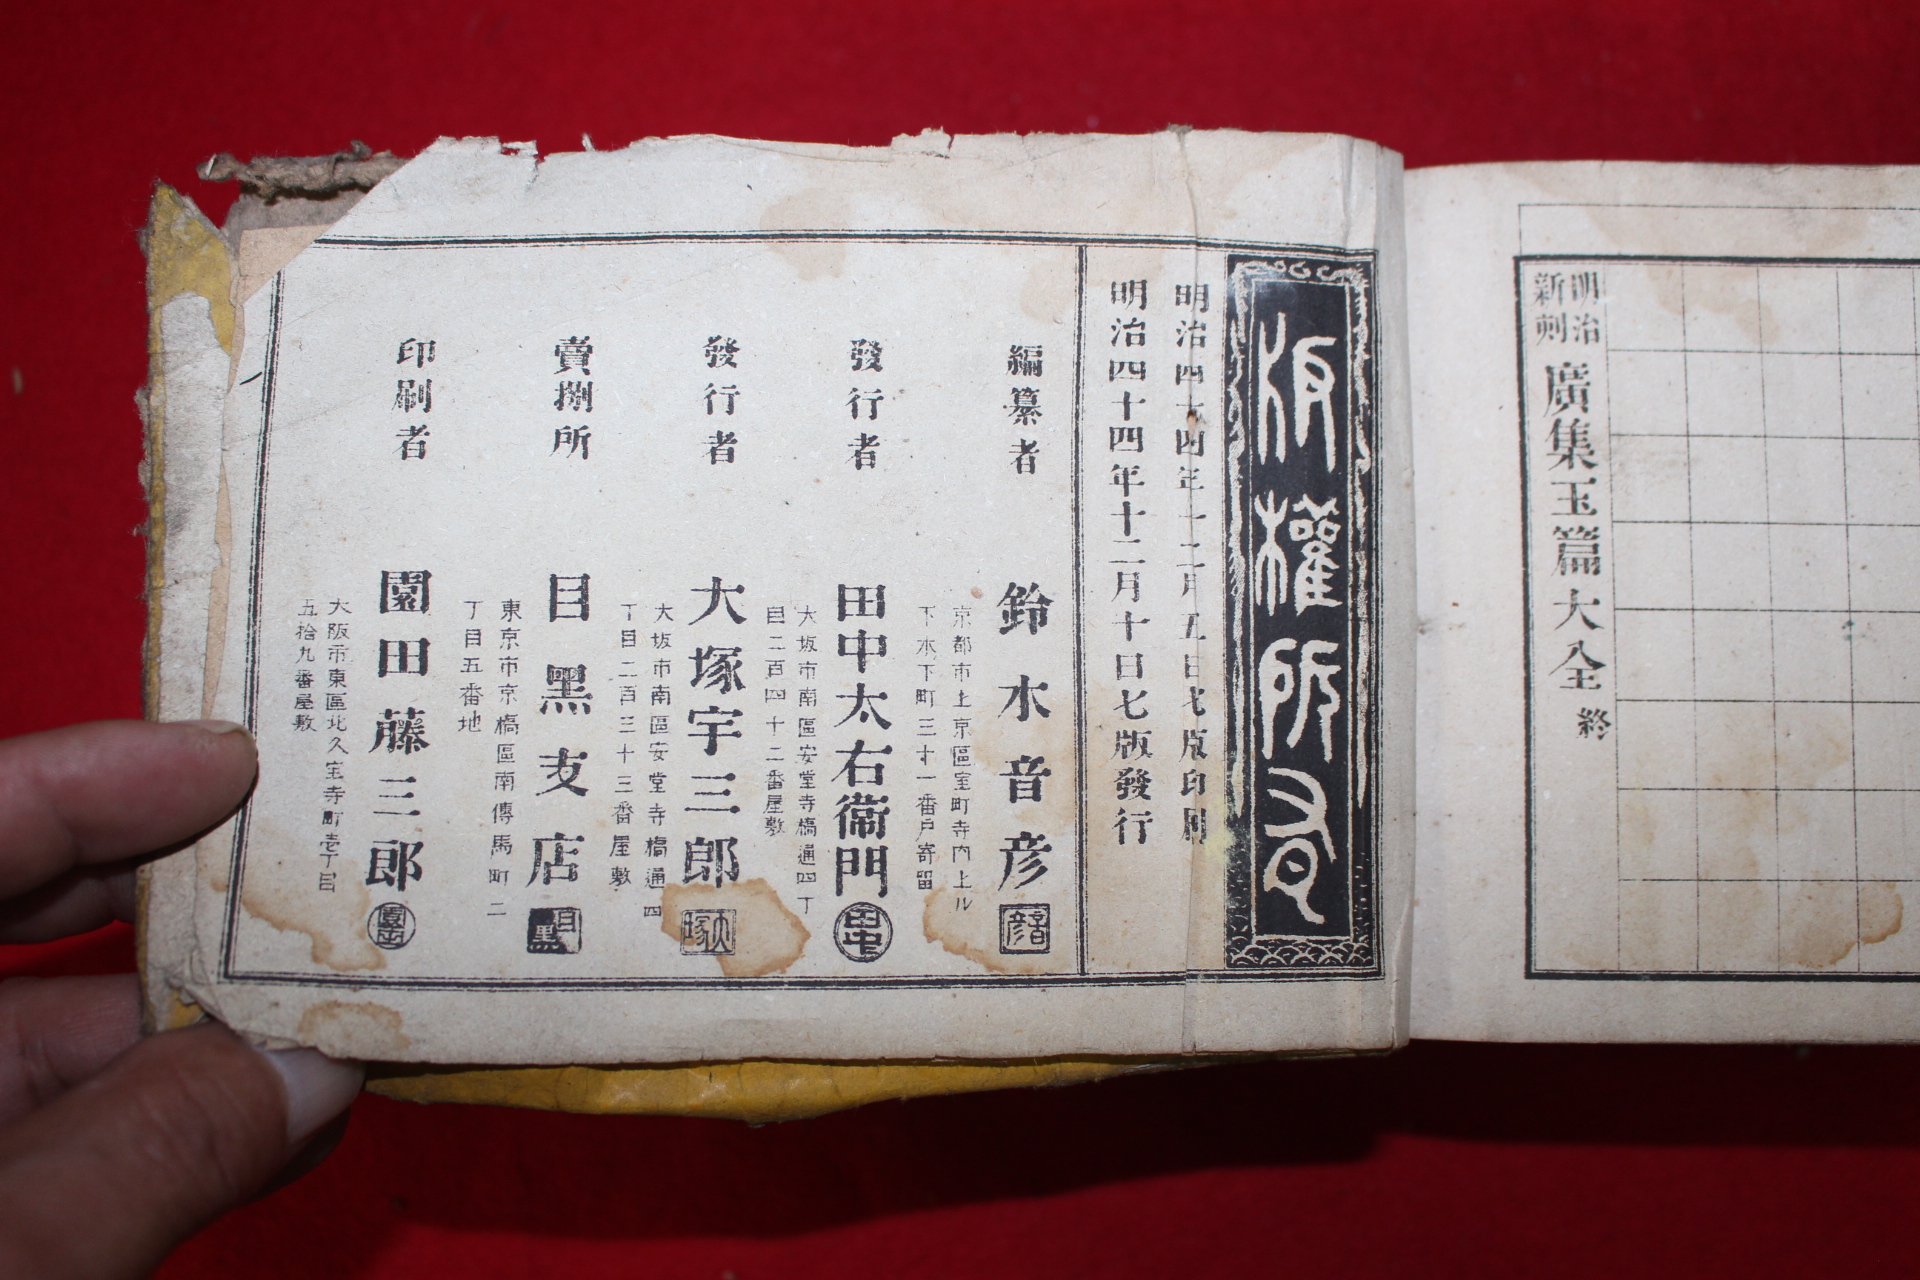 明治
新刻
廣集玉篇大全 終
板權所有
明治四十四年十二月五日七版印刷
明治四十四年十二月十日七版發行
編纂者
鈴木音彦
京都市上京區室町寺内上ル
下木下町三十一番戸寄留
發行者
田中太右衞門
大坂市南區安堂寺橋通四丁
目二百四十二番屋敷
田中
發行者
大塚宇三郎
大坂市南區安堂寺橋通四
丁目二百三十三番屋敷
大塚
賣捌所
目黑支店
東京市京橋區南傳馬町二
丁目五番地
目黑
印刷者
園田藤三郎
大阪市東區北久宝寺町壱丁目
五拾九番屋敷